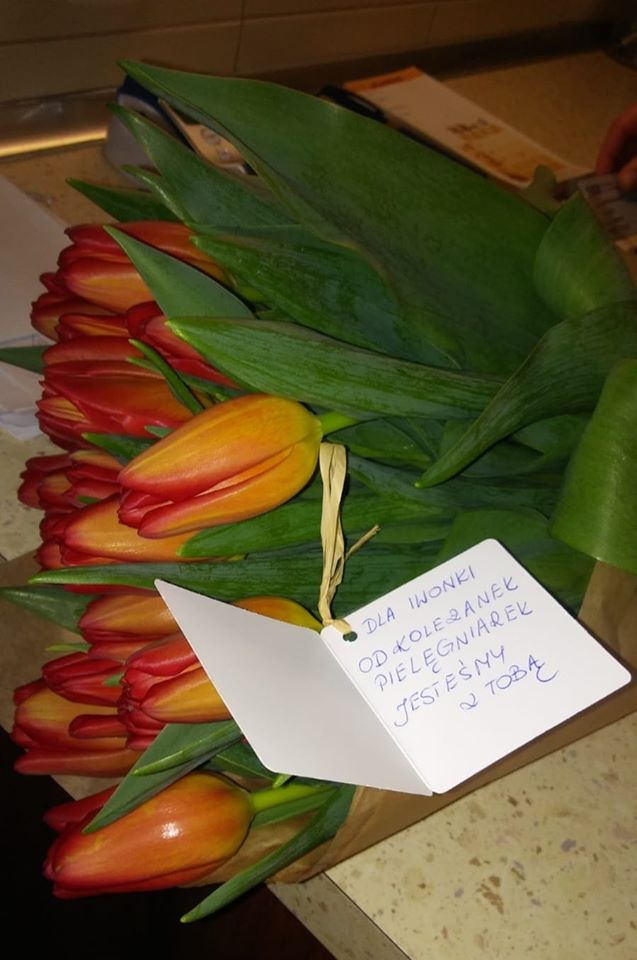 DLA IWONKI
OD KOLEŻANEK
PIELĘGNIAREK
JESTEŚMY
Z TOBĄ